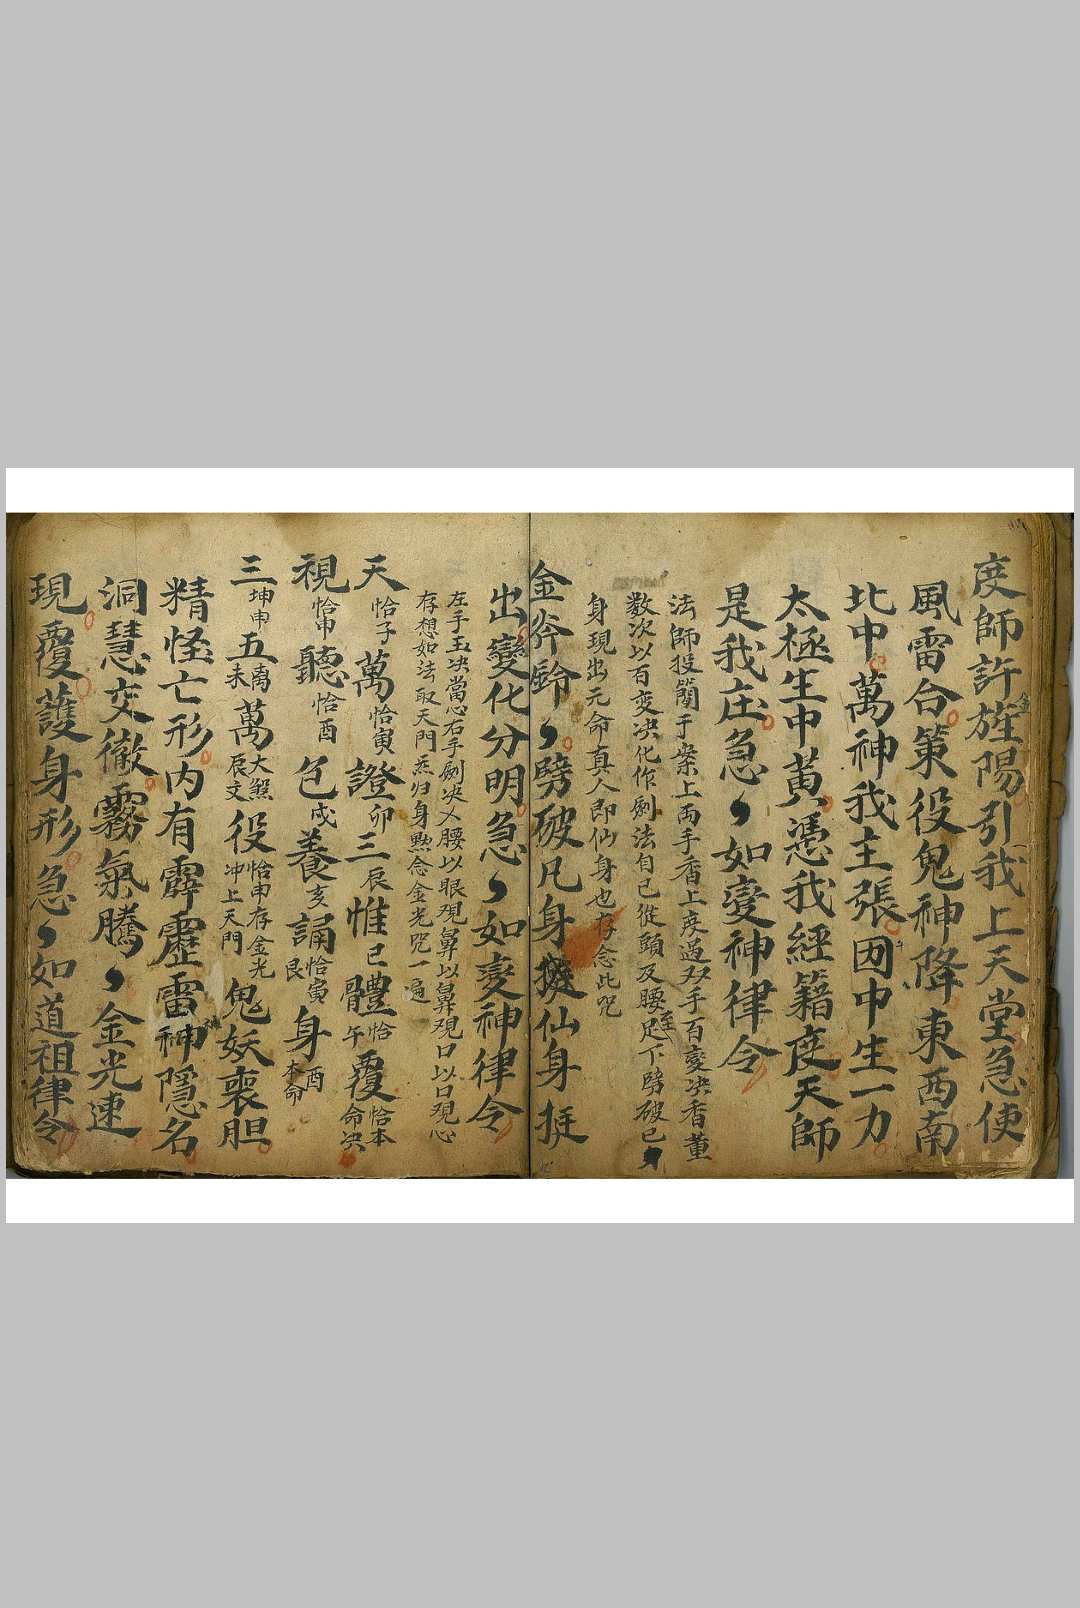 度師許旌陽引我上天堂急使
風雷合策役鬼神降東西南
北中萬神我主張因中生一力
太極生中黃憑我經籍度天師
是我庄急〻如變神律令
法師投簡于案上両手香上度過双手百变决香薰
数次以百变决化作劍法自己從頭及腰足下劈破己
身現出元命真人即仙身也存念此咒
金斧鈴〻劈破凡身仙身挺
出變化分明急〻如变神律令
左手玉决當心右手劍决乂腰以眼观鼻以鼻观口以口观心
存想如法取天門炁归身默念金光咒一遍
天恰子萬恰寅證卯三辰惟巳體恰午覆恰本命决
視恰申聽恰酉包戌養亥誦恰寅艮身酉本命
三坤申五离未萬大煞辰文役恰申存金光冲上天門鬼妖喪胆
精怪亡形内有霹靂雷神隱名
洞慧交徹霧氣騰〻金光速
現覆護身形急〻如道祖律令